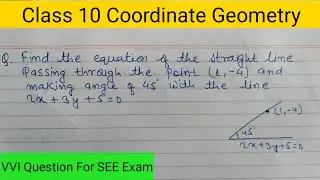 Class 10 Coordinate Geometry
Q. Find the equation of the straight line
Passing through the point (1,-4) and
making angle of 45° with the line
2x+3y+5=0
(1,-4)
45°
2x+3y+5=0
VVI Question For SEE Exam